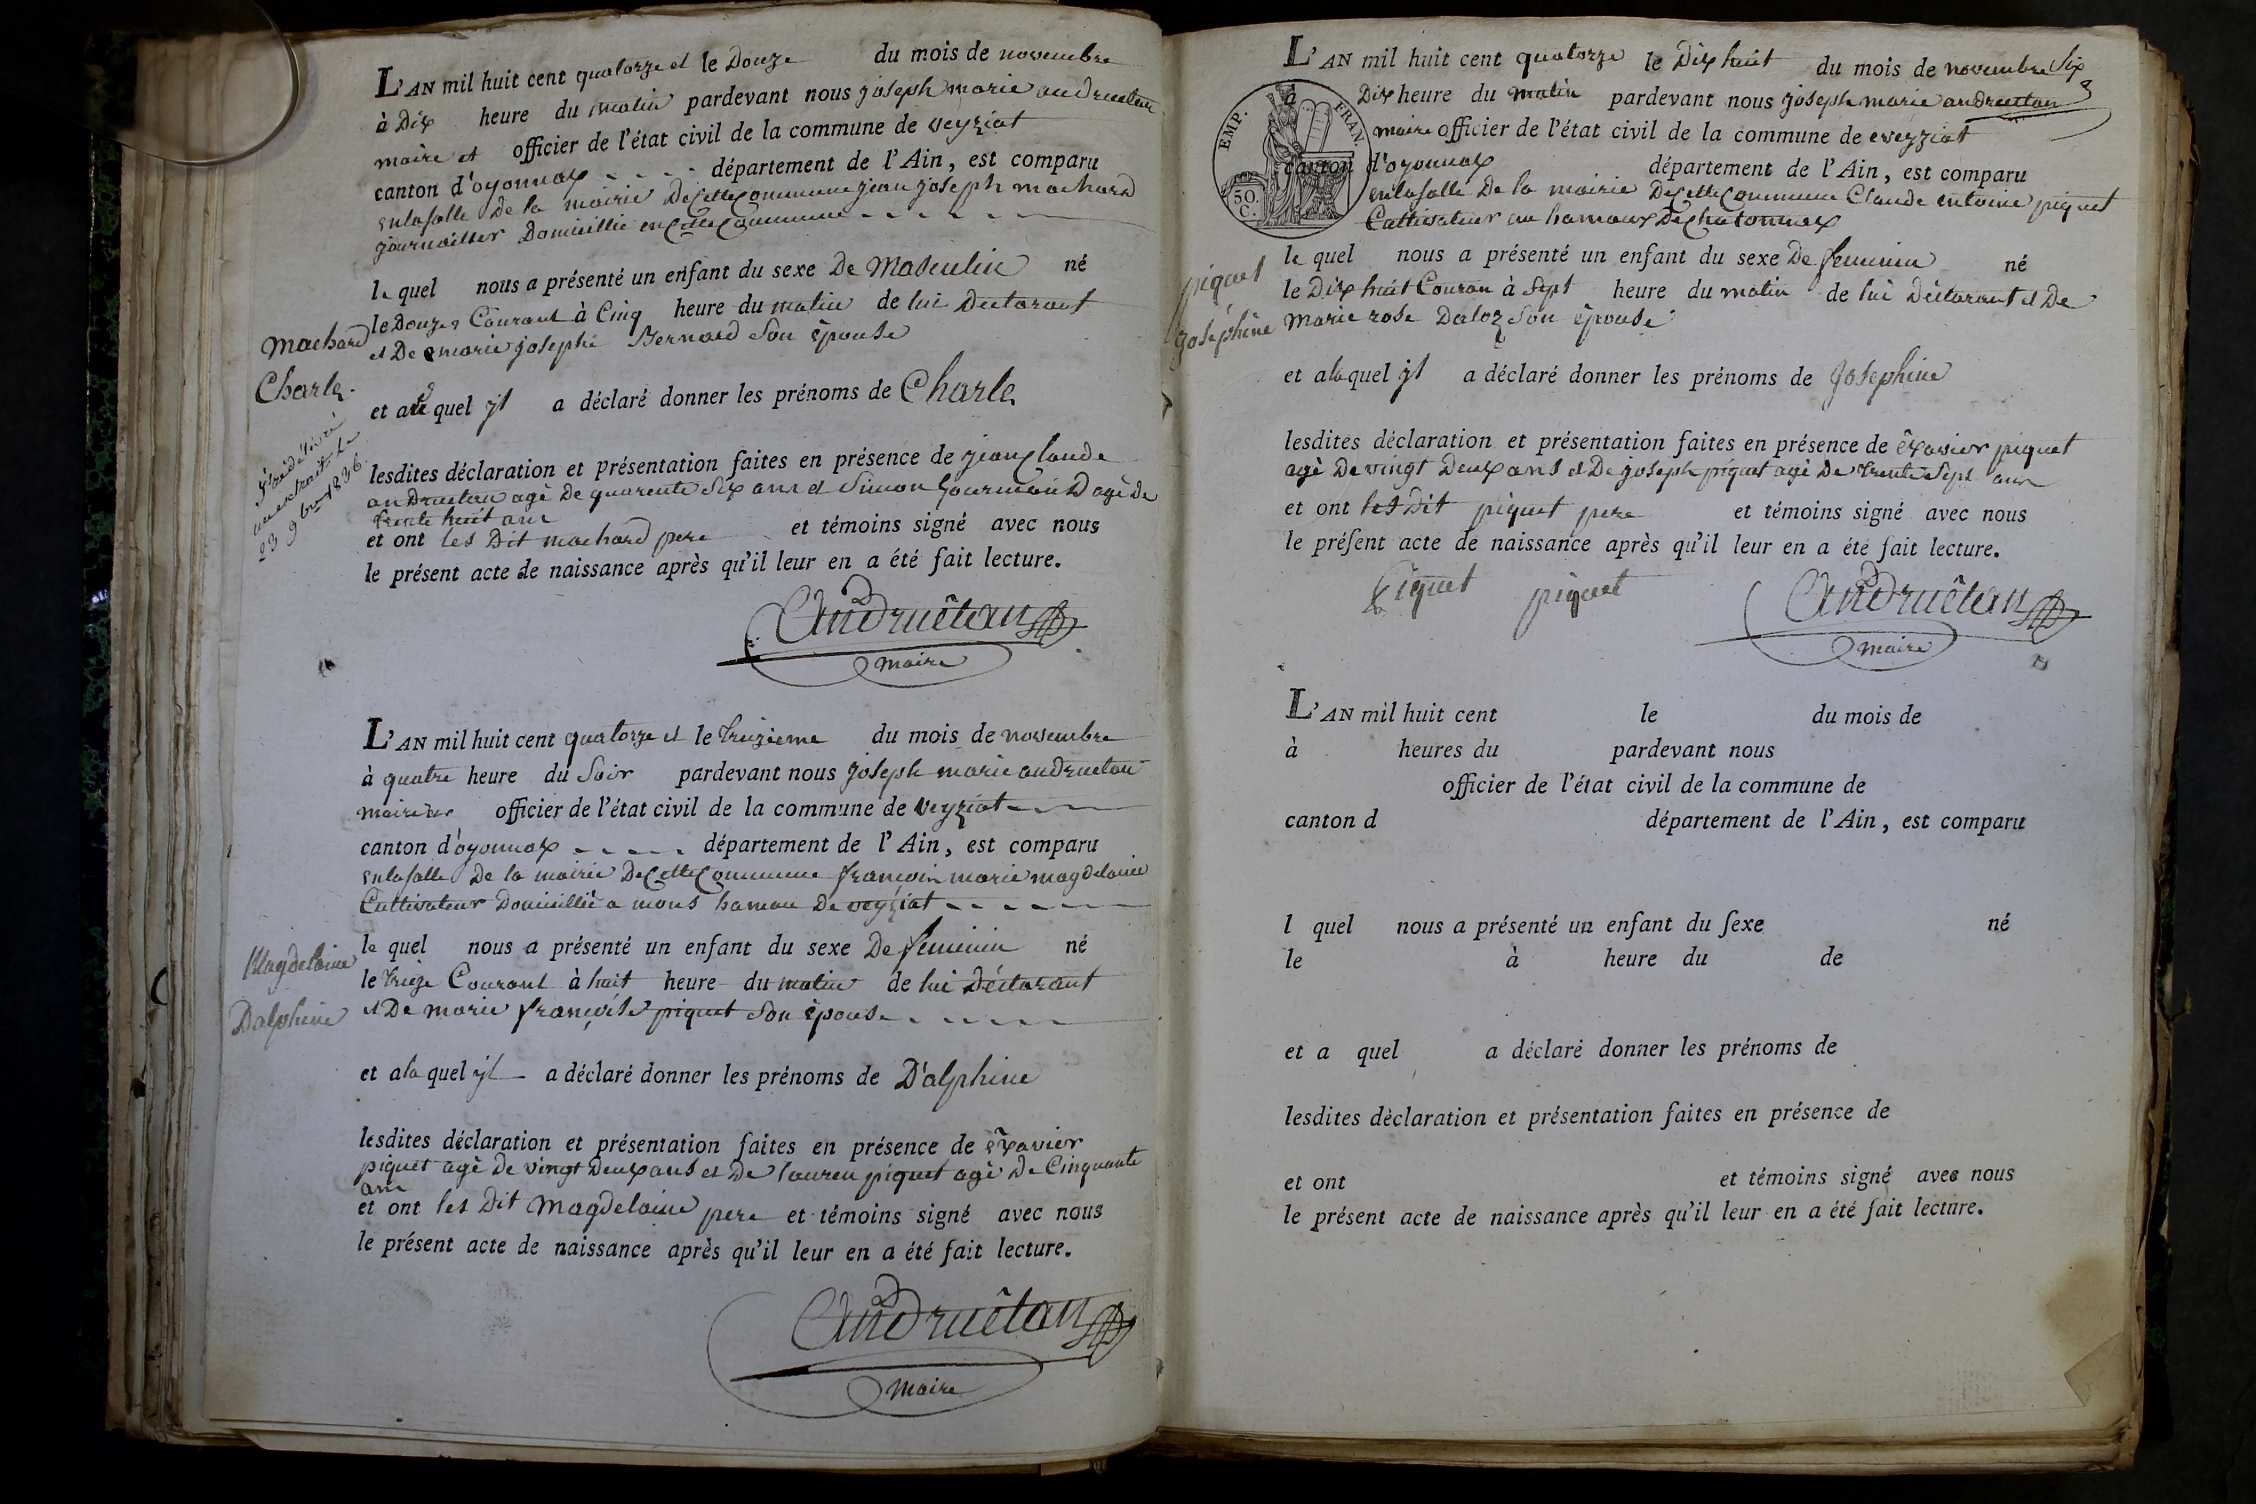 L'AN mil huit cent quatorze et le Douze du mois de novembre
à Dix heure du matin pardevant nous joseph marie andruetan
maire et officier de l'état civil de la commune de veyziat
canton d'oyonnax département de l'Ain, est comparu
en la salle De la mairie De Cette Commune jean joseph machard
journailler Domicillie en Cette Commune
le quel nous a présenté un enfant du sexe De Masculin né
le Douze Courant à Cinq heure du matin de lui Declarant
et De marie josephe Bernard Son épouse
machard
Charle
et au quel yl a déclaré donner les prénoms de Charle
j'ai délivré
un extrait le
23 9bre 1836
lesdites déclaration et présentation faites en présence de jean Claude
andruetan agé de quarente Six ans et Simon Gourmand agé de
trente huit ans
et ont les Dit machard pere et témoins signé avec nous
le présent acte de naissance après qu'il leur en a été fait lecture.
Andruêtan
maire
L'AN mil huit cent quatorze et le treizieme du mois de novembre
à quatre heure du Soir pardevant nous joseph marie andruetan
maire officier de l'état civil de la commune de veyziat
canton d'oyonnax département de l'Ain, est comparu
en la salle De la mairie De Cette Commune françois marie magdelaine
Cultivateur Domicillié a mons hamau De veyziat
le quel nous a présenté un enfant du sexe De feminin né
le treize Courant à huit heure du matin de lui Déclarant
et De marie françoise piquet Son épouse
Magdelaine
Dalphine
et a la quel yl a déclaré donner les prénoms de D'alphine
lesdites déclaration et présentation faites en présence de éxavier
piquet agé de vingt Deux ans et De lauren piquet agé De Cinquante
ans
et ont les Dit Magdelaine pere et témoins signé avec nous
le présent acte de naissance après qu'il leur en a été fait lecture.
Andruêtan
maire
L'AN mil huit cent quatorze le Dix huit du mois de novembre Six
à Dix heure du matin pardevant nous joseph marie andruetan
maire officier de l'état civil de la commune de veyziat
canton d'oyonnax département de l'Ain, est comparu
en la salle De la mairie De Cette Commune Claude entoine piquet
Cultivateur au hamaux De Chatonnax
EMP. FRAN.
50.
C.
le quel nous a présenté un enfant du sexe De feminin né
le Dix huit Couran à Sept heure du matin de lui Déclarant et De
marie rose Daloz Son épouse
piquet
joséphine
et a la quel yl a déclaré donner les prénoms de Josephine
lesdites déclaration et présentation faites en présence de éxavier piquet
agé De vingt Deux ans et De joseph piquet agé De trente Sept ans
et ont les Dit piquet pere et témoins signé avec nous
le présent acte de naissance après qu'il leur en a été fait lecture.
Piquet piquet Andruêtan
maire
L'AN mil huit cent le du mois de
à heures du pardevant nous
officier de l'état civil de la commune de
canton d département de l'Ain, est comparu
l quel nous a présenté un enfant du sexe né
le à heure du de
et a quel a déclaré donner les prénoms de
lesdites déclaration et présentation faites en présence de
et ont et témoins signé avec nous
le présent acte de naissance après qu'il leur en a été fait lecture.